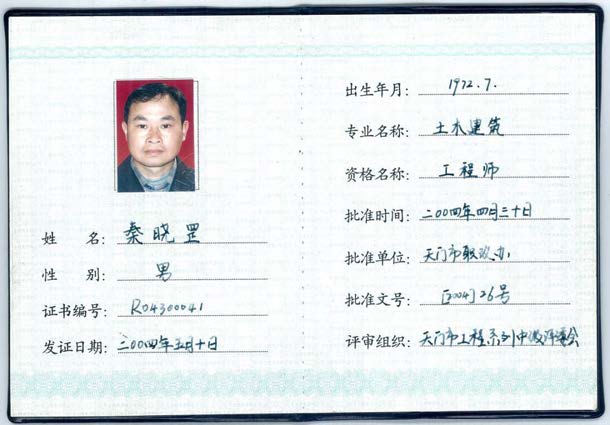 姓 名：秦晓罡
性 别：男
证书编号：R04300041
发证日期：二00四年五月十日
出生年月：1972.7.
专业名称：土木建筑
资格名称：工程师
批准时间：二00四年四月三十日
批准单位：天门市职改办
批准文号：[2004]26号
评审组织：天门市工程系列中级评委会